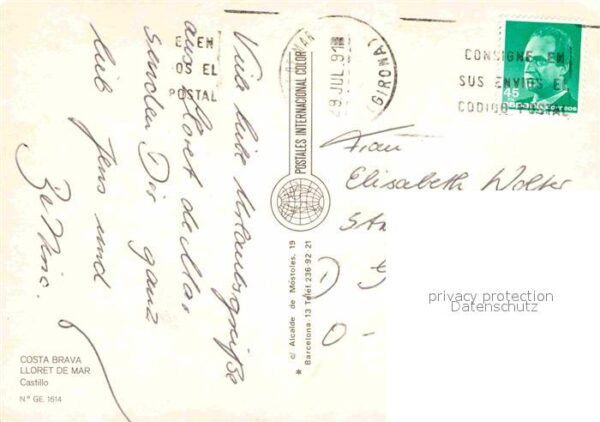 Viele liebe Urlaubsgrüße
aus Lloret de Mar
senden Dir ganz
lieb Jens und
COSTA BRAVA
LLORET DE MAR
Castillo
N.º GE. 1614
POSTALES INTERNACIONAL COLOR
c/ Alcalde de Móstoles, 19
* Barcelona-13 Teléf. 236 92 21
E EN
OS EL
POSTAL
DE MAR
29 JUL 91
(GIRONA)
CONSIGNE EN
SUS ENVIOS EL
CODIGO POSTAL
45
Frau
Elisabeth Wolter
O-
privacy protection
Datenschutz